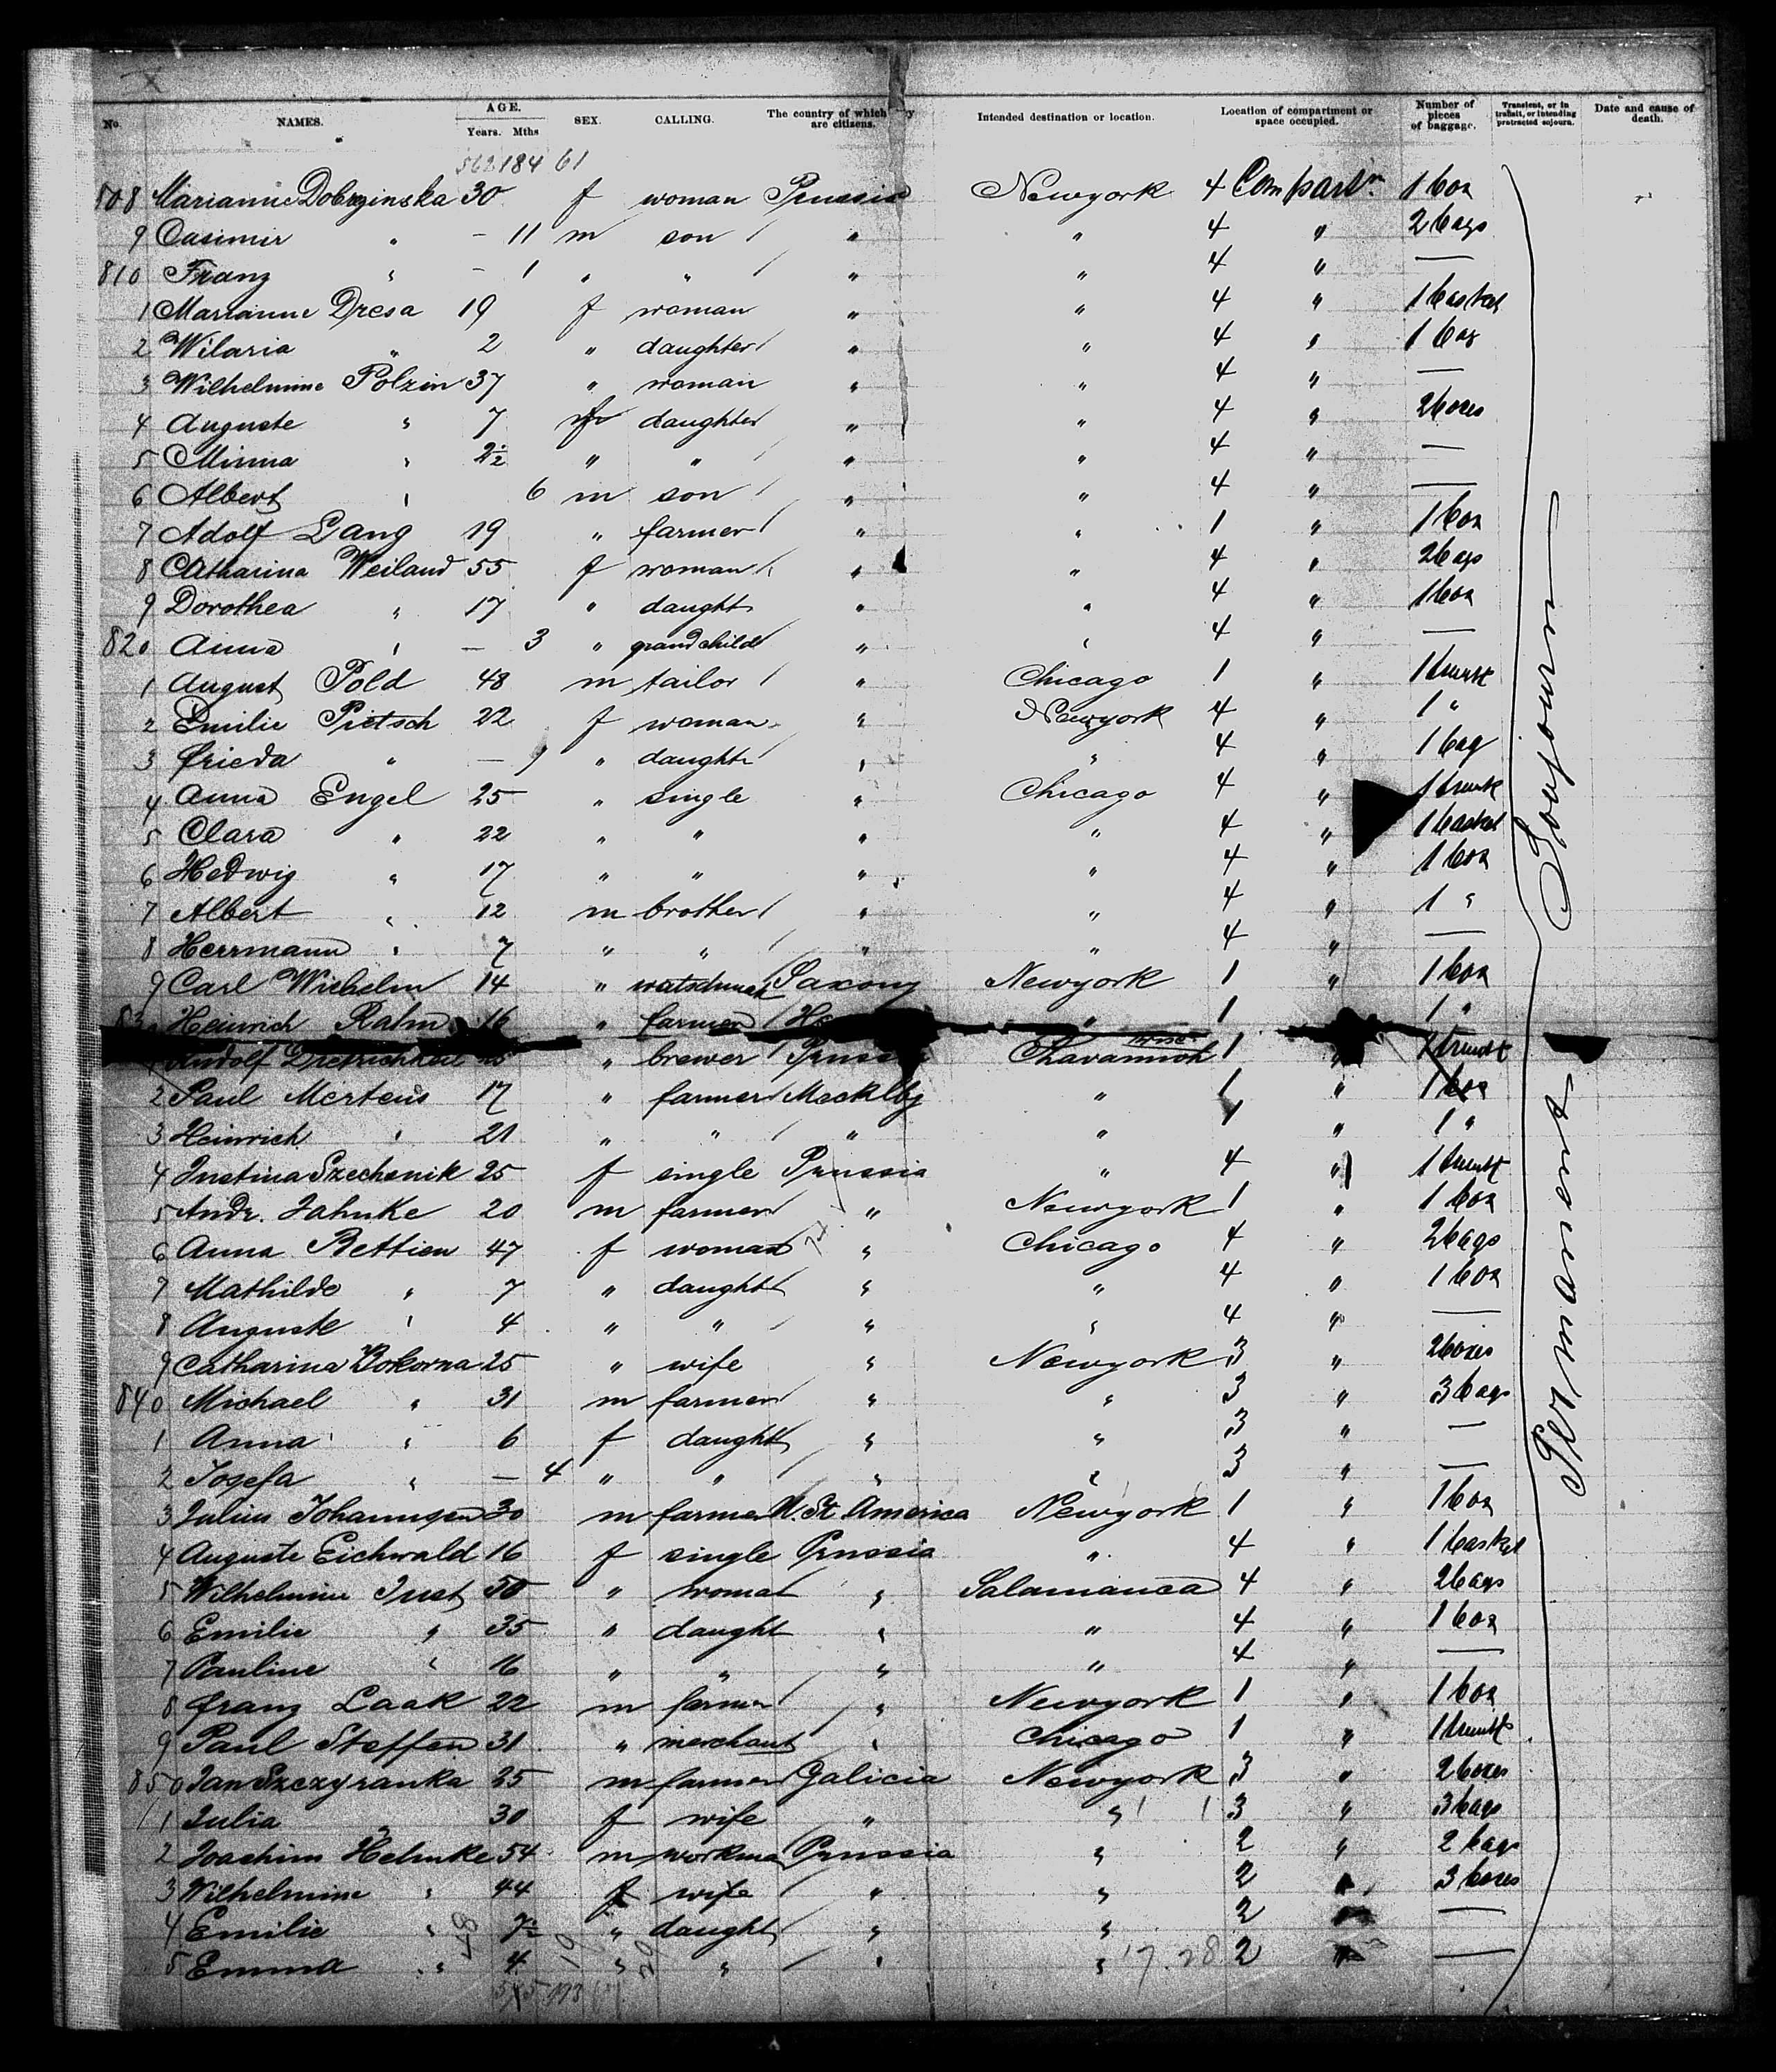 No. NAMES. AGE. Years. Mths SEX. CALLING. The country of which they are citizens. Intended destination or location. Location of compartment or space occupied. Number of pieces of baggage. Transient, or in transit, or intending protracted sojourn. Date and cause of death.
184 61
508 Marianne Dobrzinska 30 f woman Prussia Newyork 4 Compartm. 1 box
9 Casimir " — 11 m son " " 4 " 2 bags
810 Franz " — 1 " " " " 4 " —
1 Marianne Dresa 19 f woman " " 4 " 1 basket
2 Wilaria " 2 " daughter " " 4 " 1 bag
3 Wilhelmine Polzin 37 " woman " " 4 " —
4 Auguste " 7 f daughter " " 4 " 2 boxes
5 Minna " 2 1/2 " " " " 4 " —
6 Albert " 6 m son " " 4 " —
7 Adolf Gang 19 " farmer " " 1 " 1 box
8 Catharina Weiland 55 f woman " " 4 " 2 bags
9 Dorothea " 17 " daught " " 4 " 1 box
820 Anna " — 3 " grandchild " " 4 " —
1 August Pold 48 m tailor " Chicago 1 " 1 trunk
2 Emilie Pietsch 22 f woman " Newyork 4 " 1 "
3 Frieda " — 9 " daughtr " " 4 " 1 bag
4 Anna Engel 25 " single " Chicago 4 " 1 trunk
5 Clara " 22 " " " " 4 " 1 basket
6 Hedwig " 17 " " " " 4 " 1 box
7 Albert " 12 m brother " " 4 " 1 "
8 Herrmann " 7 " " " " 4 " —
9 Carl Wichelm 14 " Saxony Newyork 1 " 1 box
Heinrich Rahm 16 " farmer " 1 1 "
Rudolf " brewer Prussia 1 " 1 trunk
2 Paul Mertens 17 " farmer Mecklbg " 1 " 1 box
3 Heinrich " 21 " " " " 1 " 1 "
4 Justina Szechenik 25 f single Prussia " 4 " 1 trunk
5 Andr. Jahnke 20 m farmer " Newyork 1 " 1 box
6 Anna Rettien 47 f woman " Chicago 4 " 2 bags
7 Mathilde " 7 " daught " " 4 " 1 box
8 Auguste " 4 " " " " 4 " —
9 Catharina Bokorna 25 " wife " Newyork 3 " 2 boxes
840 Michael " 31 m farmer " " 3 " 3 bags
1 Anna " 6 f daught " " 3 " —
2 Josefa " — 4 " " " " 3 " —
3 Julius Johannsen 30 m farmer U. St. America Newyork 1 " 1 box
4 Auguste Eichwald 16 f single Prussia " 4 " 1 basket
5 Wilhelmine Just 50 " woman " Salamanca 4 " 2 bags
6 Emilie " 35 " daught " " 4 " 1 box
7 Pauline " 16 " " " " 4 " —
8 Franz Laak 22 m farmer " Newyork 1 " 1 box
9 Paul Steffen 31 " merchant " Chicago 1 " 1 trunk
850 Jan Szczyranka 25 m farmer Galicia Newyork 3 " 2 boxes
1 Julia " 30 f wife " " 3 " 3 bags
2 Joachim Helmke 54 m workman Prussia " 2 " 2 bags
3 Wilhelmine " 44 f wife " " 2 3 boxes
4 Emilie " 7 " daught " " 2 —
5 Emma " 4 " " " " 17.28. 2 —
Permanent Sojourn